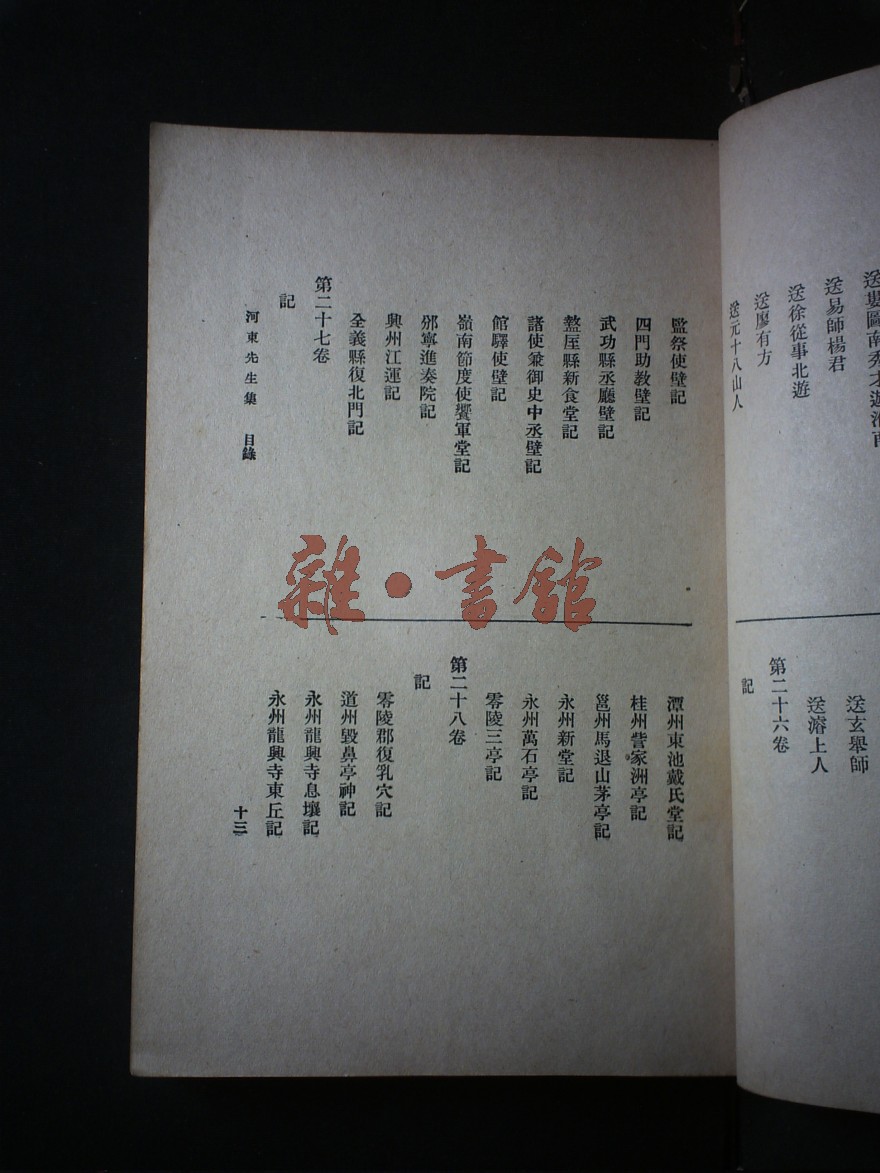 送婁圖南秀才遊淮南
送易師楊君
送徐從事北遊
送廖有方
送元十八山人
送玄舉師
送濬上人
第二十六卷
記
監祭使壁記
四門助教壁記
武功縣丞廳壁記
盩厔縣新食堂記
諸使兼御史中丞壁記
館驛使壁記
嶺南節度使饗軍堂記
邠寧進奏院記
興州江運記
全義縣復北門記
第二十七卷
記
潭州東池戴氏堂記
桂州訾家洲亭記
邕州馬退山茅亭記
永州新堂記
永州萬石亭記
零陵三亭記
第二十八卷
記
零陵郡復乳穴記
道州毀鼻亭神記
永州龍興寺息壤記
永州龍興寺東丘記
河東先生集 目錄
十三
雜·書館